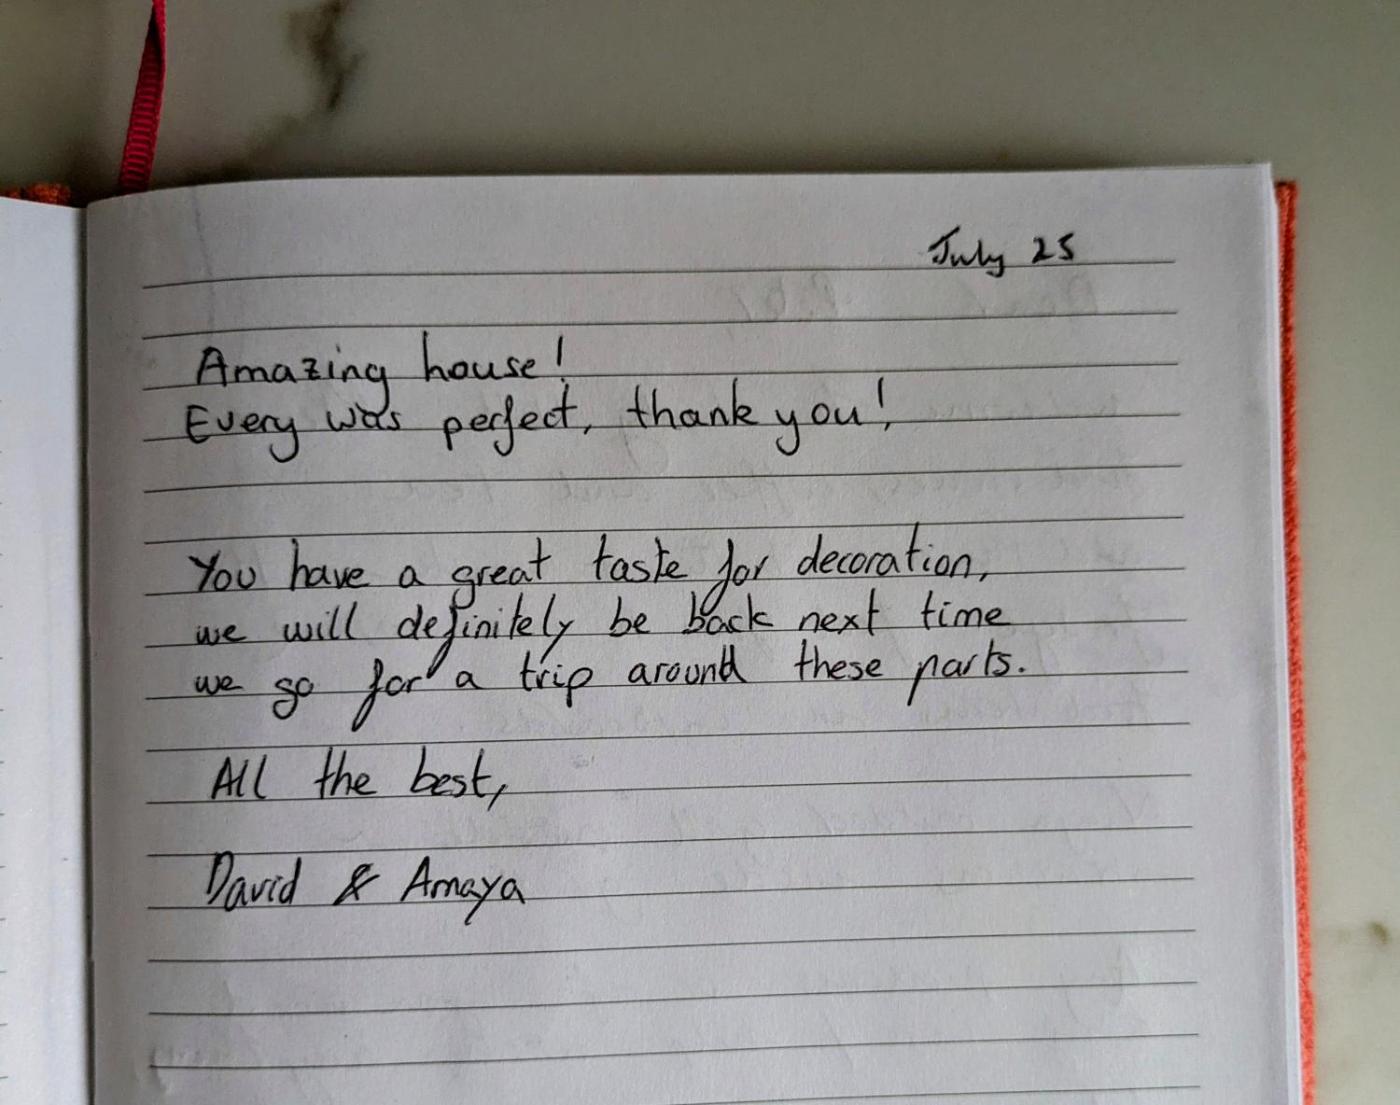 July 25
Amazing house!
Every was perfect, thank you!
You have a great taste for decoration,
we will definitely be back next time
we go for a trip around these parts.
All the best,
David & Amaya